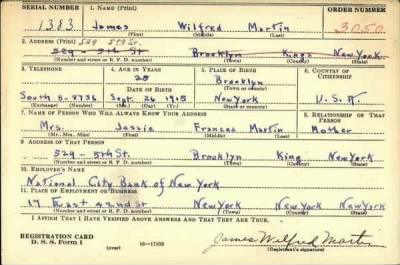 SERIAL NUMBER 1. NAME (Print) ORDER NUMBER
1383 James Wilfred Martin 3050
(First) (Middle) (Last)
2. ADDRESS (Print) 529 5th St.
529 - 5th St Brooklyn Kings New York
(Number and street or R. F. D. number) (Town) (County) (State)
3. TELEPHONE 4. AGE IN YEARS 5. PLACE OF BIRTH 6. COUNTRY OF CITIZENSHIP
25 Brooklyn
DATE OF BIRTH (Town or county)
South 8-8736 Sept. 26 1915 New York U.S.A.
(Exchange) (Number) (Mo.) (Day) (Yr.) (State or country)
7. NAME OF PERSON WHO WILL ALWAYS KNOW YOUR ADDRESS 8. RELATIONSHIP OF THAT PERSON
Mrs. Jessie Frances Martin Mother
(Mr., Mrs., Miss) (First) (Middle) (Last)
9. ADDRESS OF THAT PERSON
529 - 5th St. Brooklyn King New York
(Number and street or R. F. D. number) (Town) (County) (State)
10. EMPLOYER'S NAME
National City Bank of New York
11. PLACE OF EMPLOYMENT OR BUSINESS
17 East 42nd St New York New York New York
(Number and street or R. F. D. number) (Town) (County) (State)
I AFFIRM THAT I HAVE VERIFIED ABOVE ANSWERS AND THAT THEY ARE TRUE.
REGISTRATION CARD
D. S. S. Form 1 (over) 16-17105 James Wilfred Martin
(Registrant's signature)